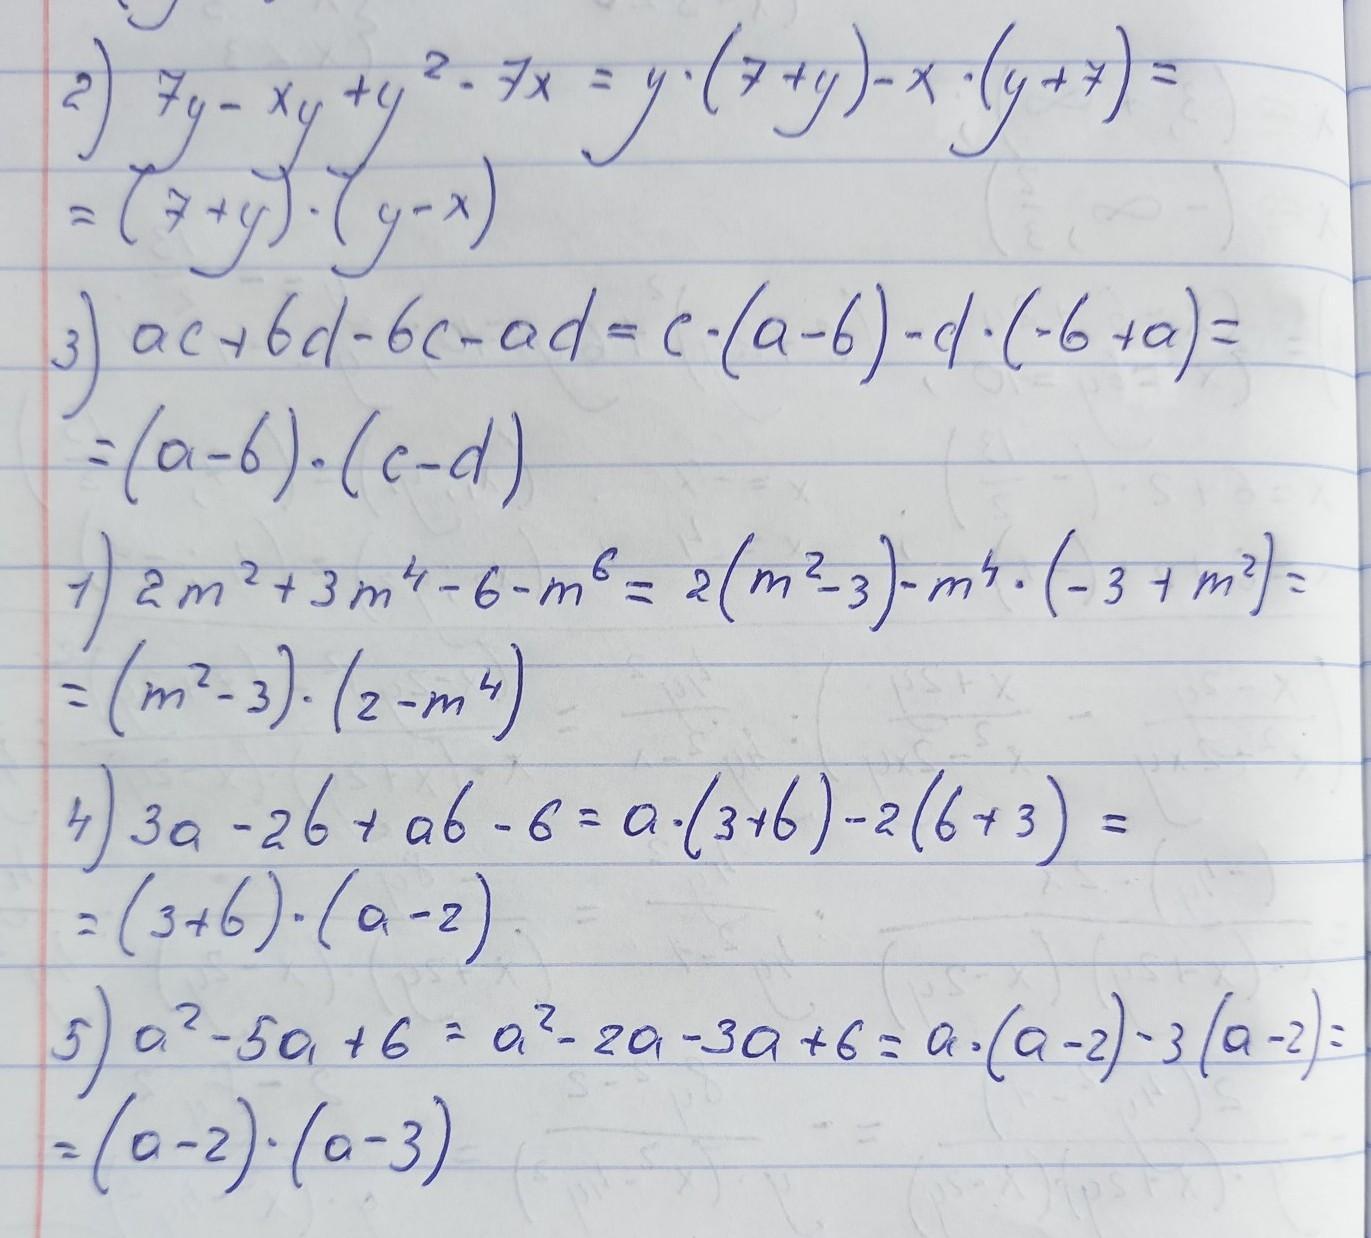 2) 7y - xy + y² - 7x = y · (7 + y) - x · (y + 7) =
= (7 + y) · (y - x)
3) ac + bd - bc - ad = c · (a - b) - d · (-b + a) =
= (a - b) · (c - d)
1) 2m² + 3m⁴ - 6 - m⁶ = 2(m² - 3) - m⁴ · (-3 + m²) =
= (m² - 3) · (2 - m⁴)
4) 3a - 2b + ab - 6 = a · (3 + b) - 2(b + 3) =
= (3 + b) · (a - 2)
5) a² - 5a + 6 = a² - 2a - 3a + 6 = a · (a - 2) - 3(a - 2) =
= (a - 2) · (a - 3)